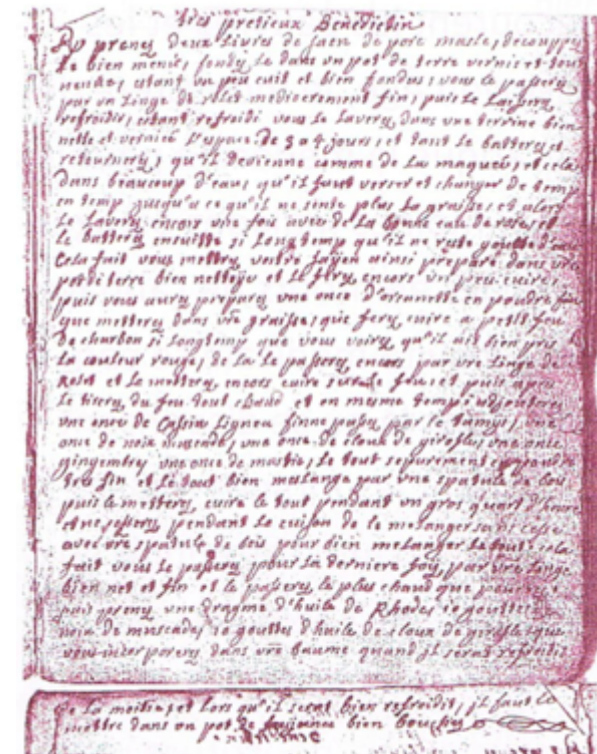 tres pretieux Benedictin
prenez deux Livres de de porc masle, decouppez
Le bien menu, fondez le dans un pot de terre verni et tout
estant un peu cuit et bien fondus, vous le passerez
par un Linge de mediocrement fin, puis le Laisserez
refroidir, estant refroidi vous le Laverez dans une terrine bien
nette et vernice l'espace de 3 a 4 jours, et tant le batterez et
retournerez, qu'il devienne comme de La et cela
dans beaucoup d'eau, qu'il faut verser et changer de temp
en temp jusqu'a ce qu'il ne sente plus La graisse, et alors
Le Laverez encors une fois avec de La bonne eau de roses, et
le batterez ensuitte si Longtemp qu'il ne reste goutte d'eau
Cela fait vous mettrez vostre ainsi preparé dans
pot de terre bien nettoje et le ferez encors un peu cuire,
puis vous aurez preparez une once d'orcanette en poudre fin
que metterez dans vre graisse, que ferez cuire a petit feu
de charbon si Longtemp que vous voirez qu'il ait bien pris
La couleur rouge, de La le passerez encors par vre Linge de
et le metterez encors cuire sur le feu, et puis apres
Le tirerez du feu tout chaud et en mesme temp adjouterez
une once de Cassia Lignea finne passez par le tamys, une
once de noix muscade, une once de cloux de girofles, une once
gingembre, une once de mastic, Le tout separement en poudre
tres fin et le tout bien meslange par une spatule de bois
puis le metterez cuire le tout pendant un gros quart d'heure
et ne pendant Le cuison de le melanger sans cesse
avec vre spatule de bois pour bien melanger Le tout, cela
fait vous le passerez pour La derniere fois, par vre Linge
bien net et fin et le passerez le plus chaud que pourrez
puis prenez une dragme d'huile de Rhodes 10 gouttes
noix de muscades 10 gouttes d'huile de cloux de girofle que
vous incorporerez dans vre baume quand il serat refroidis
de La moitie, et Lors qu'il serat bien refroidit, il faut Le
mettre dans un pot de bien bouchez